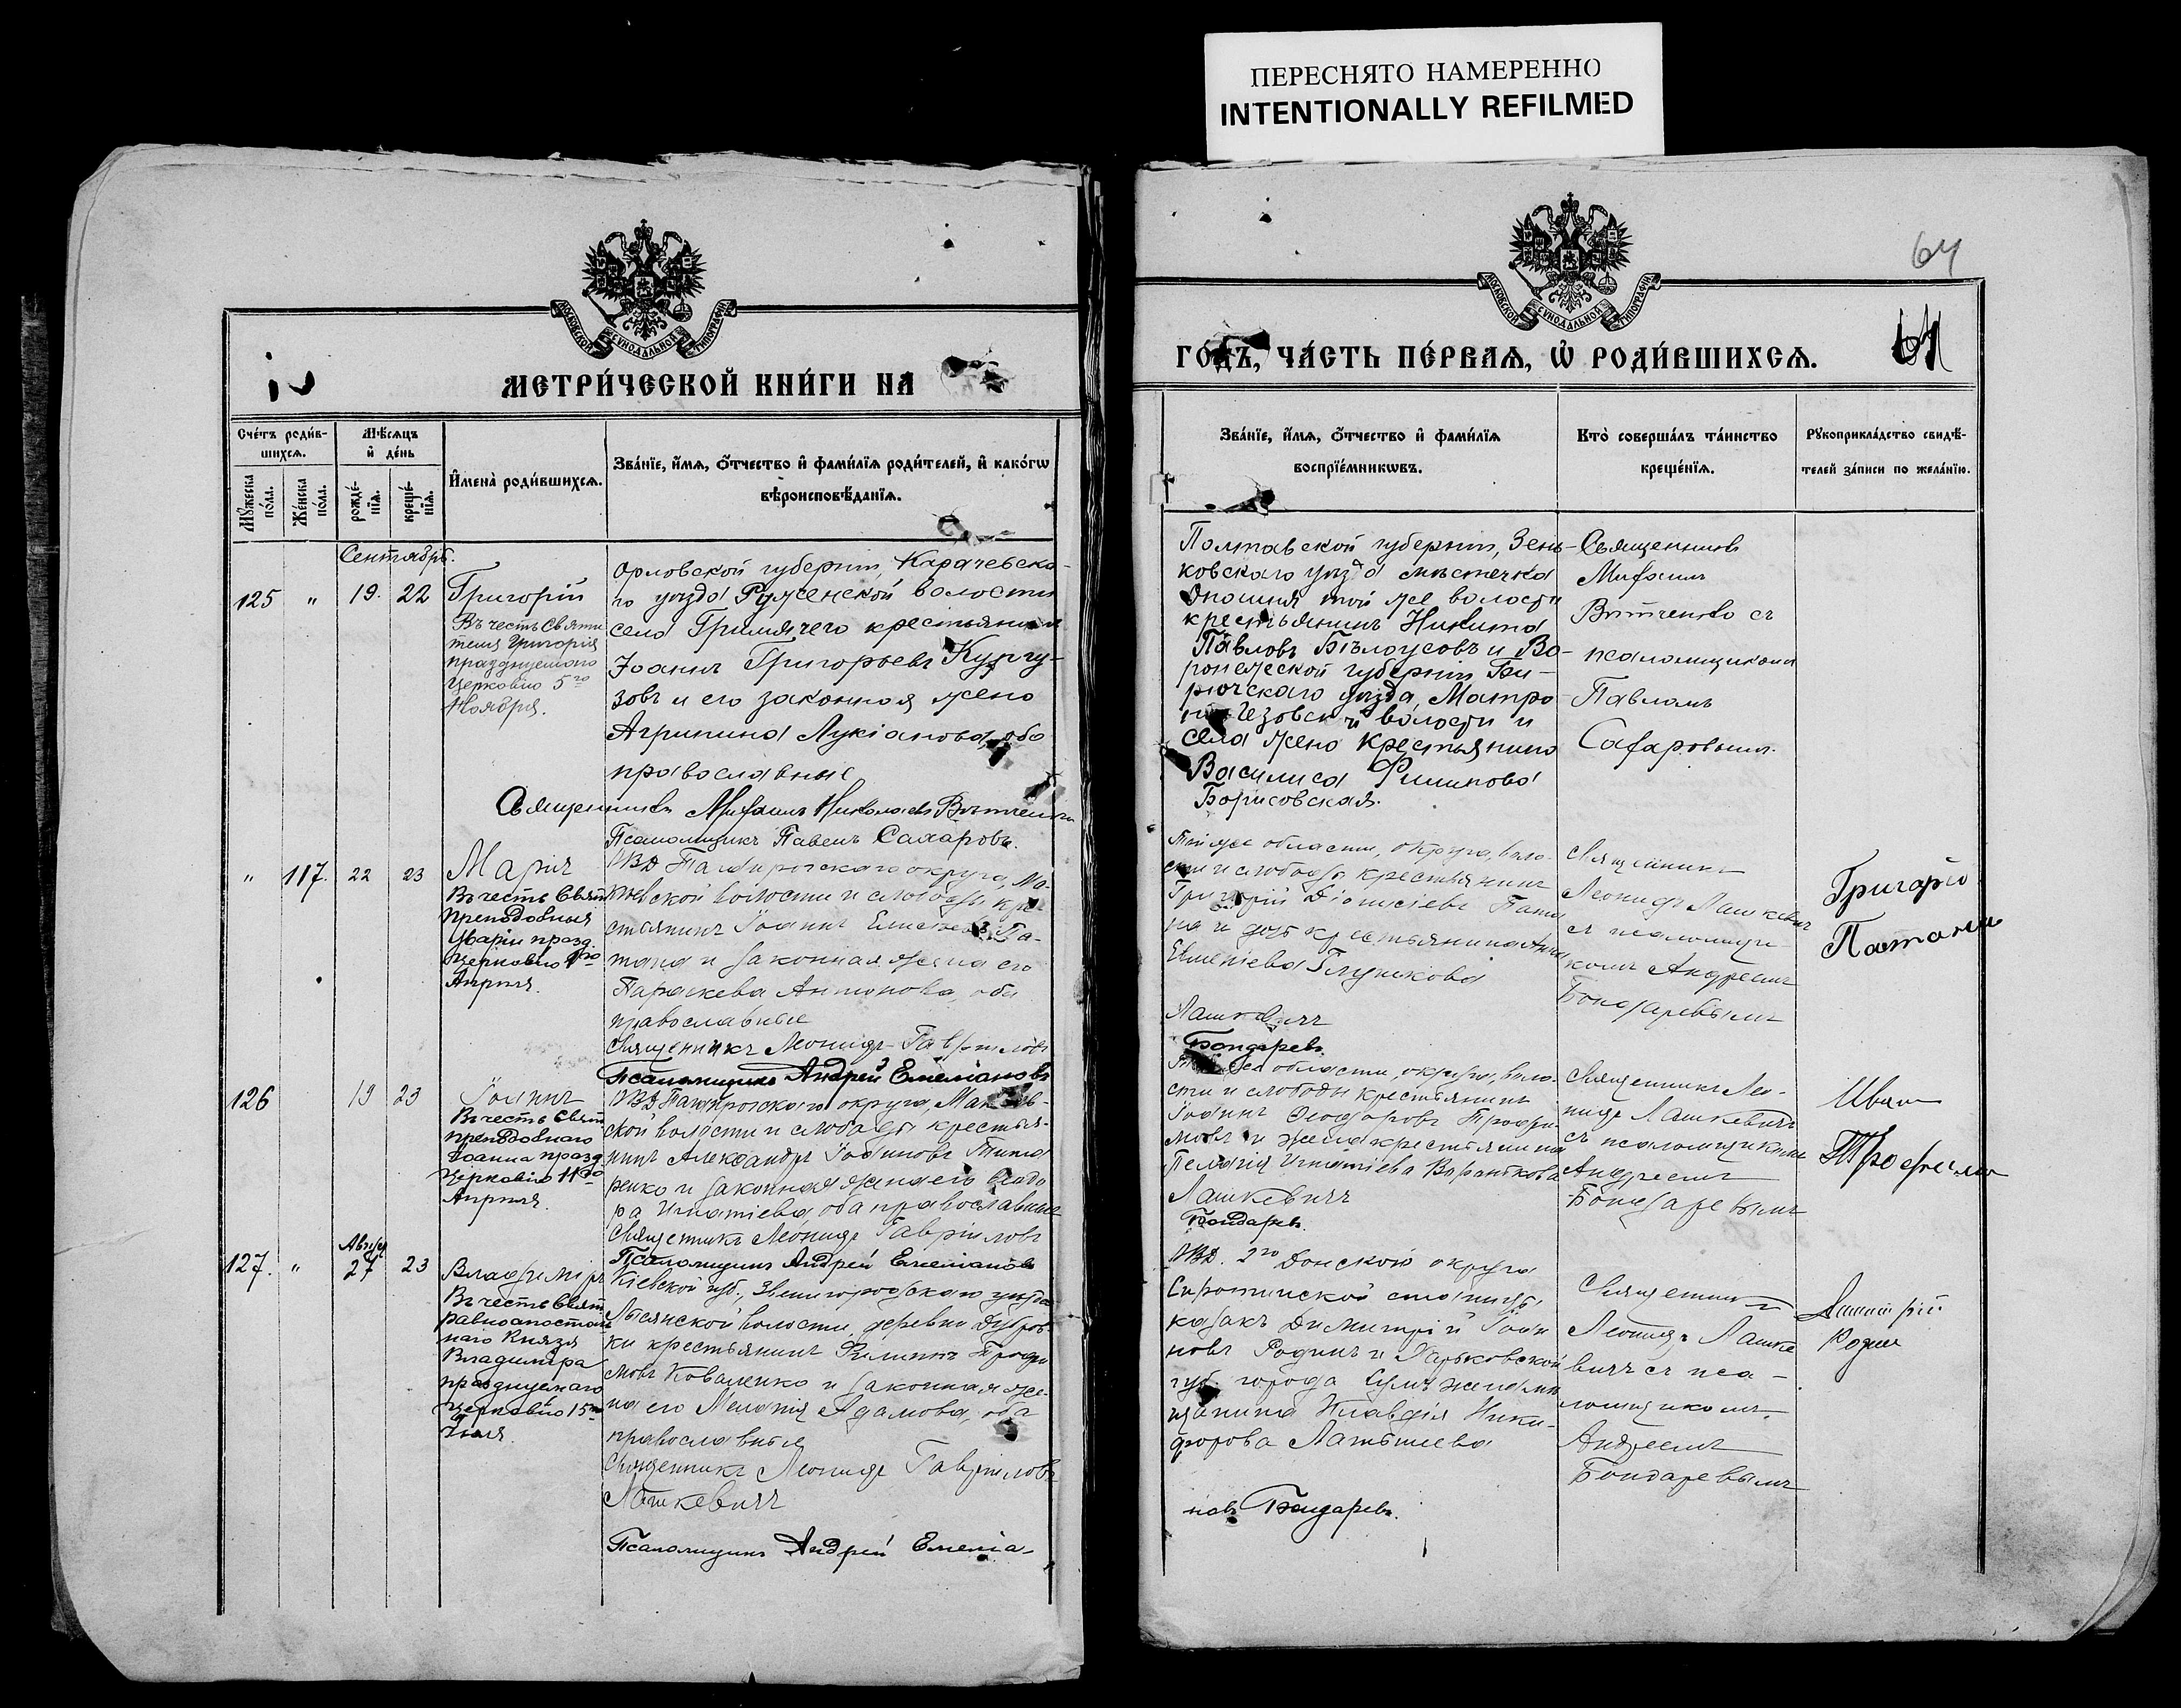 ПЕРЕСНЯТО НАМЕРЕННО
INTENTIONALLY REFILMED
64
МОСКОВСКОЙ СУНОДАЛЬНОЙ ТИПОГРАФІИ
МЕТРИ́ЧЕСКОЙ КНИ́ГИ НА
Сче́тъ роди́в-
шихсѧ.
Мѣ́сѧцъ
и҆ де́нь
Мꙋ́жеска по́ла.
Же́нска по́ла.
рожде́-
нїѧ.
креще́-
нїѧ.
И҆мена̀ роди́вшихсѧ.
Зва́нїе, и҆́мѧ, ѻ҆́тчество и҆ фами́лїѧ роди́телей, и҆ како́гѡ
вѣроисповѣ́данїѧ.
Сентябрь.
125 " 19. 22 Григорій
Въ честь Святи
теля Григорія
празднуемаго
Церковію 5го
Ноября.
Орловской губерніи, Карачевска-
го уѣзда Руженской волости
села Гримячего крестьянинъ
Іоаннъ Григорьевъ Кургу-
зовъ и его законная жена
Агрипина Лукіанова, оба
православные
Священникъ Михаилъ Николаевъ
Псаломщикъ Павелъ Сахаровъ.
" 117. 22 23 Марія
Въ честь Свят
Преподобныя
Маріи празд.
Церковію 1го
Апрѣля.
ОВД Таганрогскаго округа, Ма-
кѣевской волости и слободы кре
стьянинъ Іоаннъ
и законная жена его
Параскева Антонова, оба
православные
Священникъ Леонидъ Гавріиловъ
Псаломщикъ Андрей Емеліановъ
126 19 23 Іоаннъ
Въ честь Свят
преподобнаго
Іоанна празд
Церковію
Апрѣля.
ОВД Таганрогскаго округа, Макѣев-
ской волости и слободы крестья-
нинъ Александръ Іоанновъ Тима
ренко и законная жена его
Игнатіева, оба православные
Священникъ Леонидъ Гавріиловъ
Псаломщикъ Андрей Емеліановъ
127. " 27 23 Владиміръ
Въ честь Свят
равноапостоль
наго Князя
Владиміра
празднуемаго
Церковію 15го
Іюля.
Кіевской губ., Звенигородскаго уѣзда
Лысянской волости, деревни Дубров-
ки крестьянинъ Филиппъ Трофи
мовъ Коваленко и законная же-
на его Меланія Адамова, оба
православные
Священникъ Леонидъ Гавріиловъ
Лашкевичъ
Псаломщикъ Андрей Емеліа-
64
МОСКОВСКОЙ СУНОДАЛЬНОЙ ТИПОГРАФІИ
ГО́ДЪ, ЧА́СТЬ ПЕ́РВАѦ, Ѡ҆ РОДИ́ВШИХСѦ.
Зва́нїе, и҆́мѧ, ѻ҆́тчество и҆ фами́лїѧ
воспрїе́мникѡвъ.
Кто̀ соверша́лъ та́инство
креще́нїѧ.
Рꙋкоприкла́дство свидѣ́-
телей за́писи по жела́нїю.
Полтавской губерніи, Зень-
ковскаго уѣзда мѣстечка
той же волости
крестьянинъ Никита
Павловъ Бѣлоусовъ и Во-
ронежской губерніи Би-
рючскаго уѣзда, Матро
волости и
села жена крестьянина
Василиса Филипова
Борисовская.
Священникъ
Михаилъ
съ
псаломщикомъ
Павломъ
Сахаровымъ.
Той же области, округа, воло-
сти и слободы крестьянинъ
Григорій Діонисіевъ
и дочь крестьянина Анна
Глушкова
Лашкевичъ
Бондаревъ.
Священникъ
Леонидъ Лашкевичъ
съ псаломщи
комъ Андреемъ
Бондаревымъ
Той же области, округа, воло-
сти и слободы крестьянинъ
Іоаннъ Ѳеодоровъ Трофи-
мовъ и жена крестьянина
Пелагія Игнатіева
Лашкевичъ
Бондаревъ.
Священникъ Лео-
нидъ Лашкевичъ
съ псаломщикомъ
Андреемъ
Бондаревымъ
Иванъ
ОВД. 2го Донского округа
Сиротинской станицы
казакъ Димитрій Іоан
новъ Родинъ и Харьковской
губ. города Сумъ жена мѣ
щанина Клавдія Ники-
форова Латышева
новъ Бондаревъ.
Священникъ
Леонидъ Лашке
вичъ съ пса-
ломщикомъ
Андреемъ
Бондаревымъ